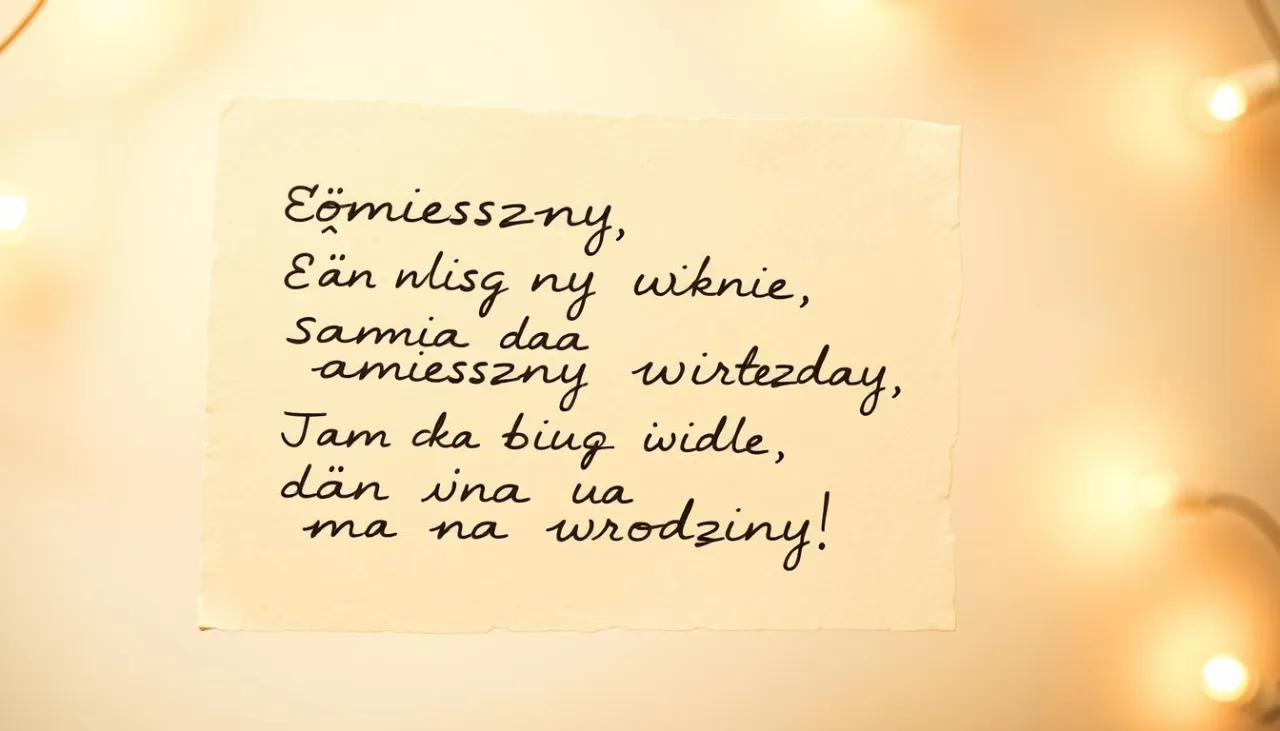 Eömiesszny,
Eän nlisg ny wiknie,
Sammia daa
amiesszny wirtezday,
Jam cka biug ividle,
dän ina ua
ma na wrodziny!